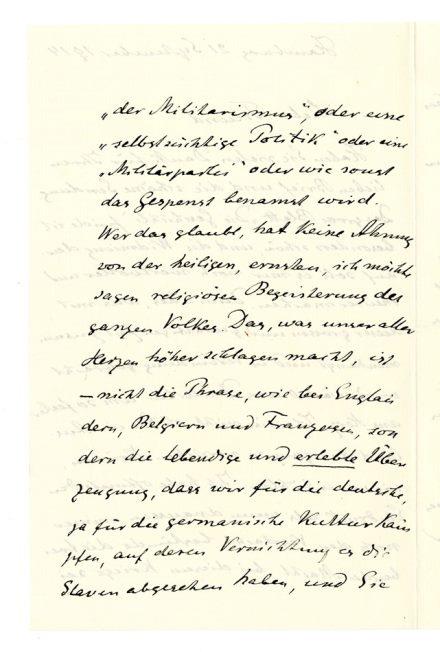 „der Militarismus“, oder eine
„selbstsüchtige Politik“ oder eine
„Militärpartei“ oder wie sonst
das Gespenst benamst wird.
Wer das glaubt, hat keine Ahnung
von der heiligen, ernsten, ich möchte
sagen religiösen Begeisterung des
ganzen Volkes. Das, was unser aller
Herzen höher schlagen macht, ist
– nicht die Phrase, wie bei Englän
dern, Belgiern und Franzosen, son
dern die lebendige und erlebte Über
zeugung, dass wir für die deutsche,
ja für die germanische Kultur käm
pfen, auf deren Vernichtung es die
Slaven abgesehen haben, und Sie